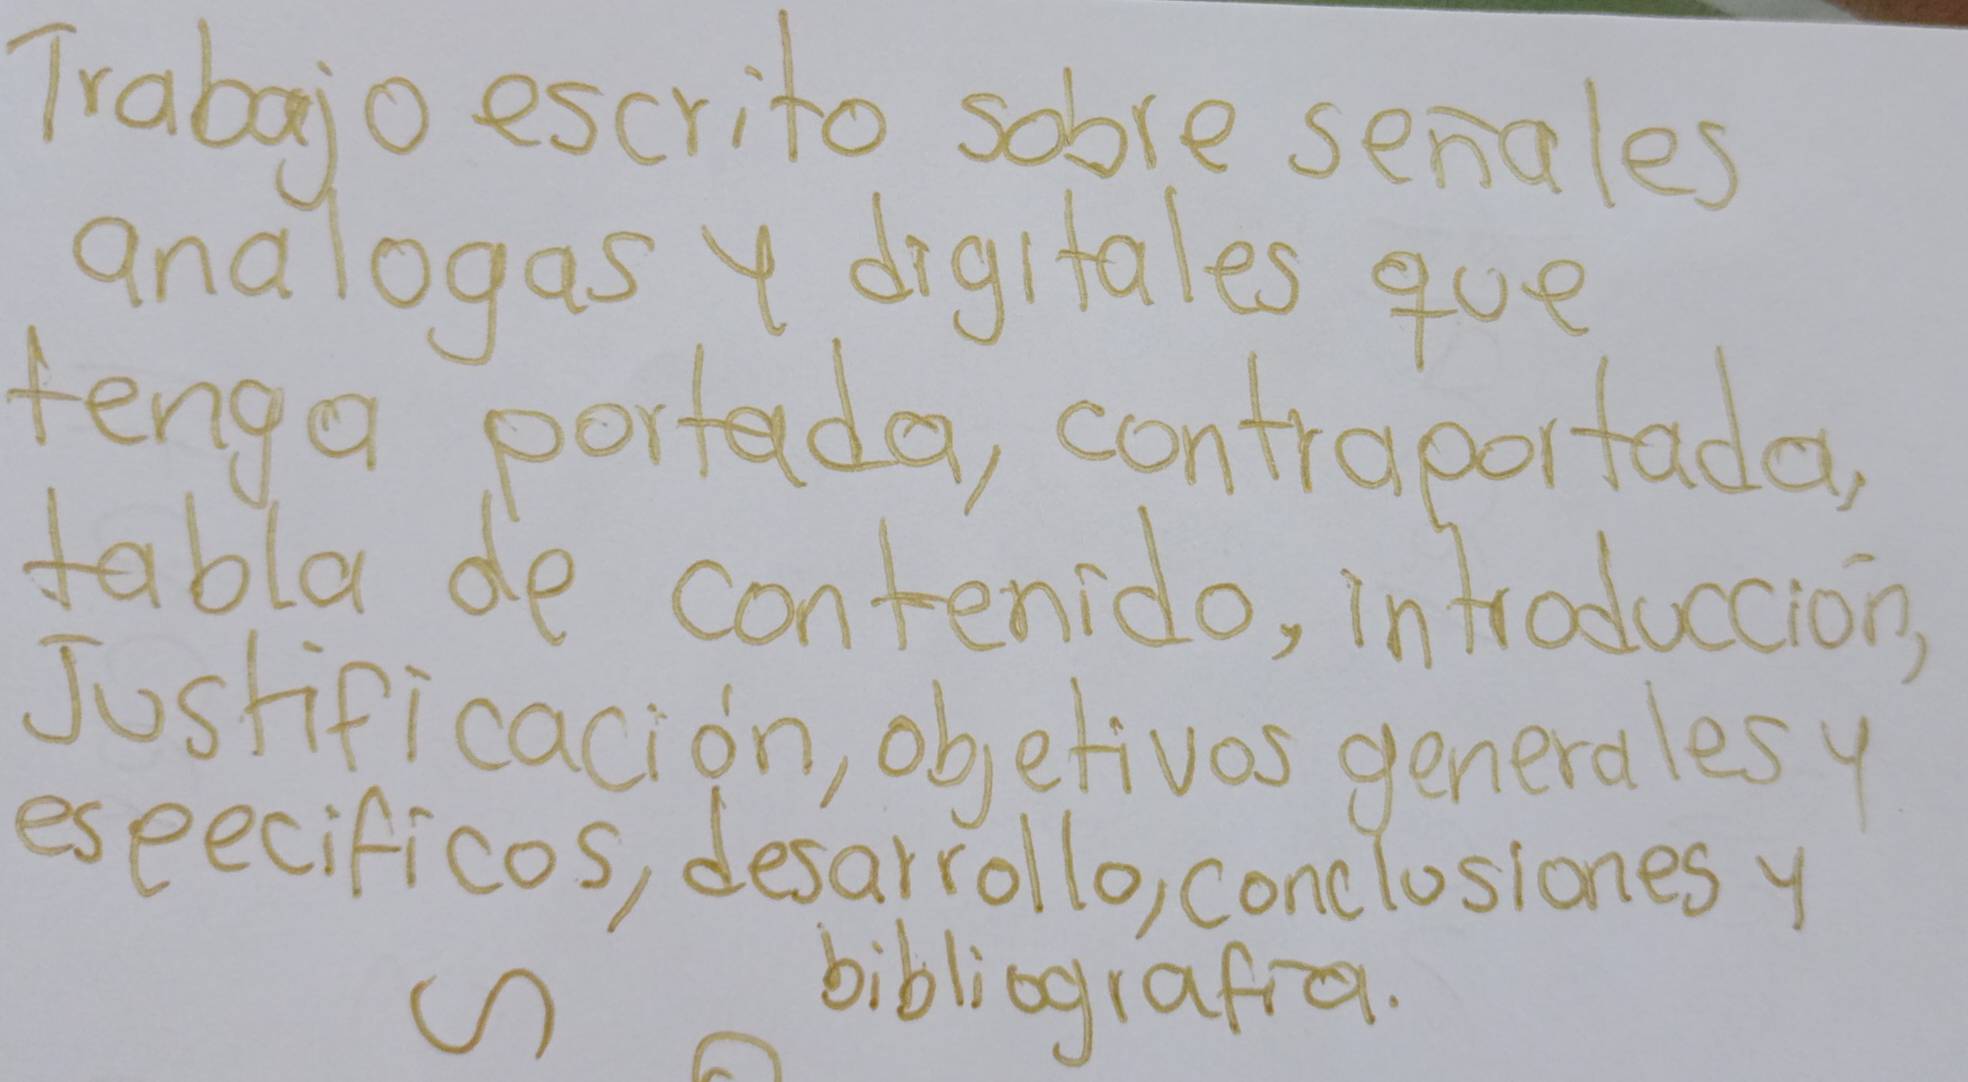 Trabajo escrito sobre señales
analogas y digitales que
tenga portada, contraportada,
tabla de contenido, introducción,
Justificación, objetivos generales y
especificos, desarrollo, conclusiones y
bibliografia.